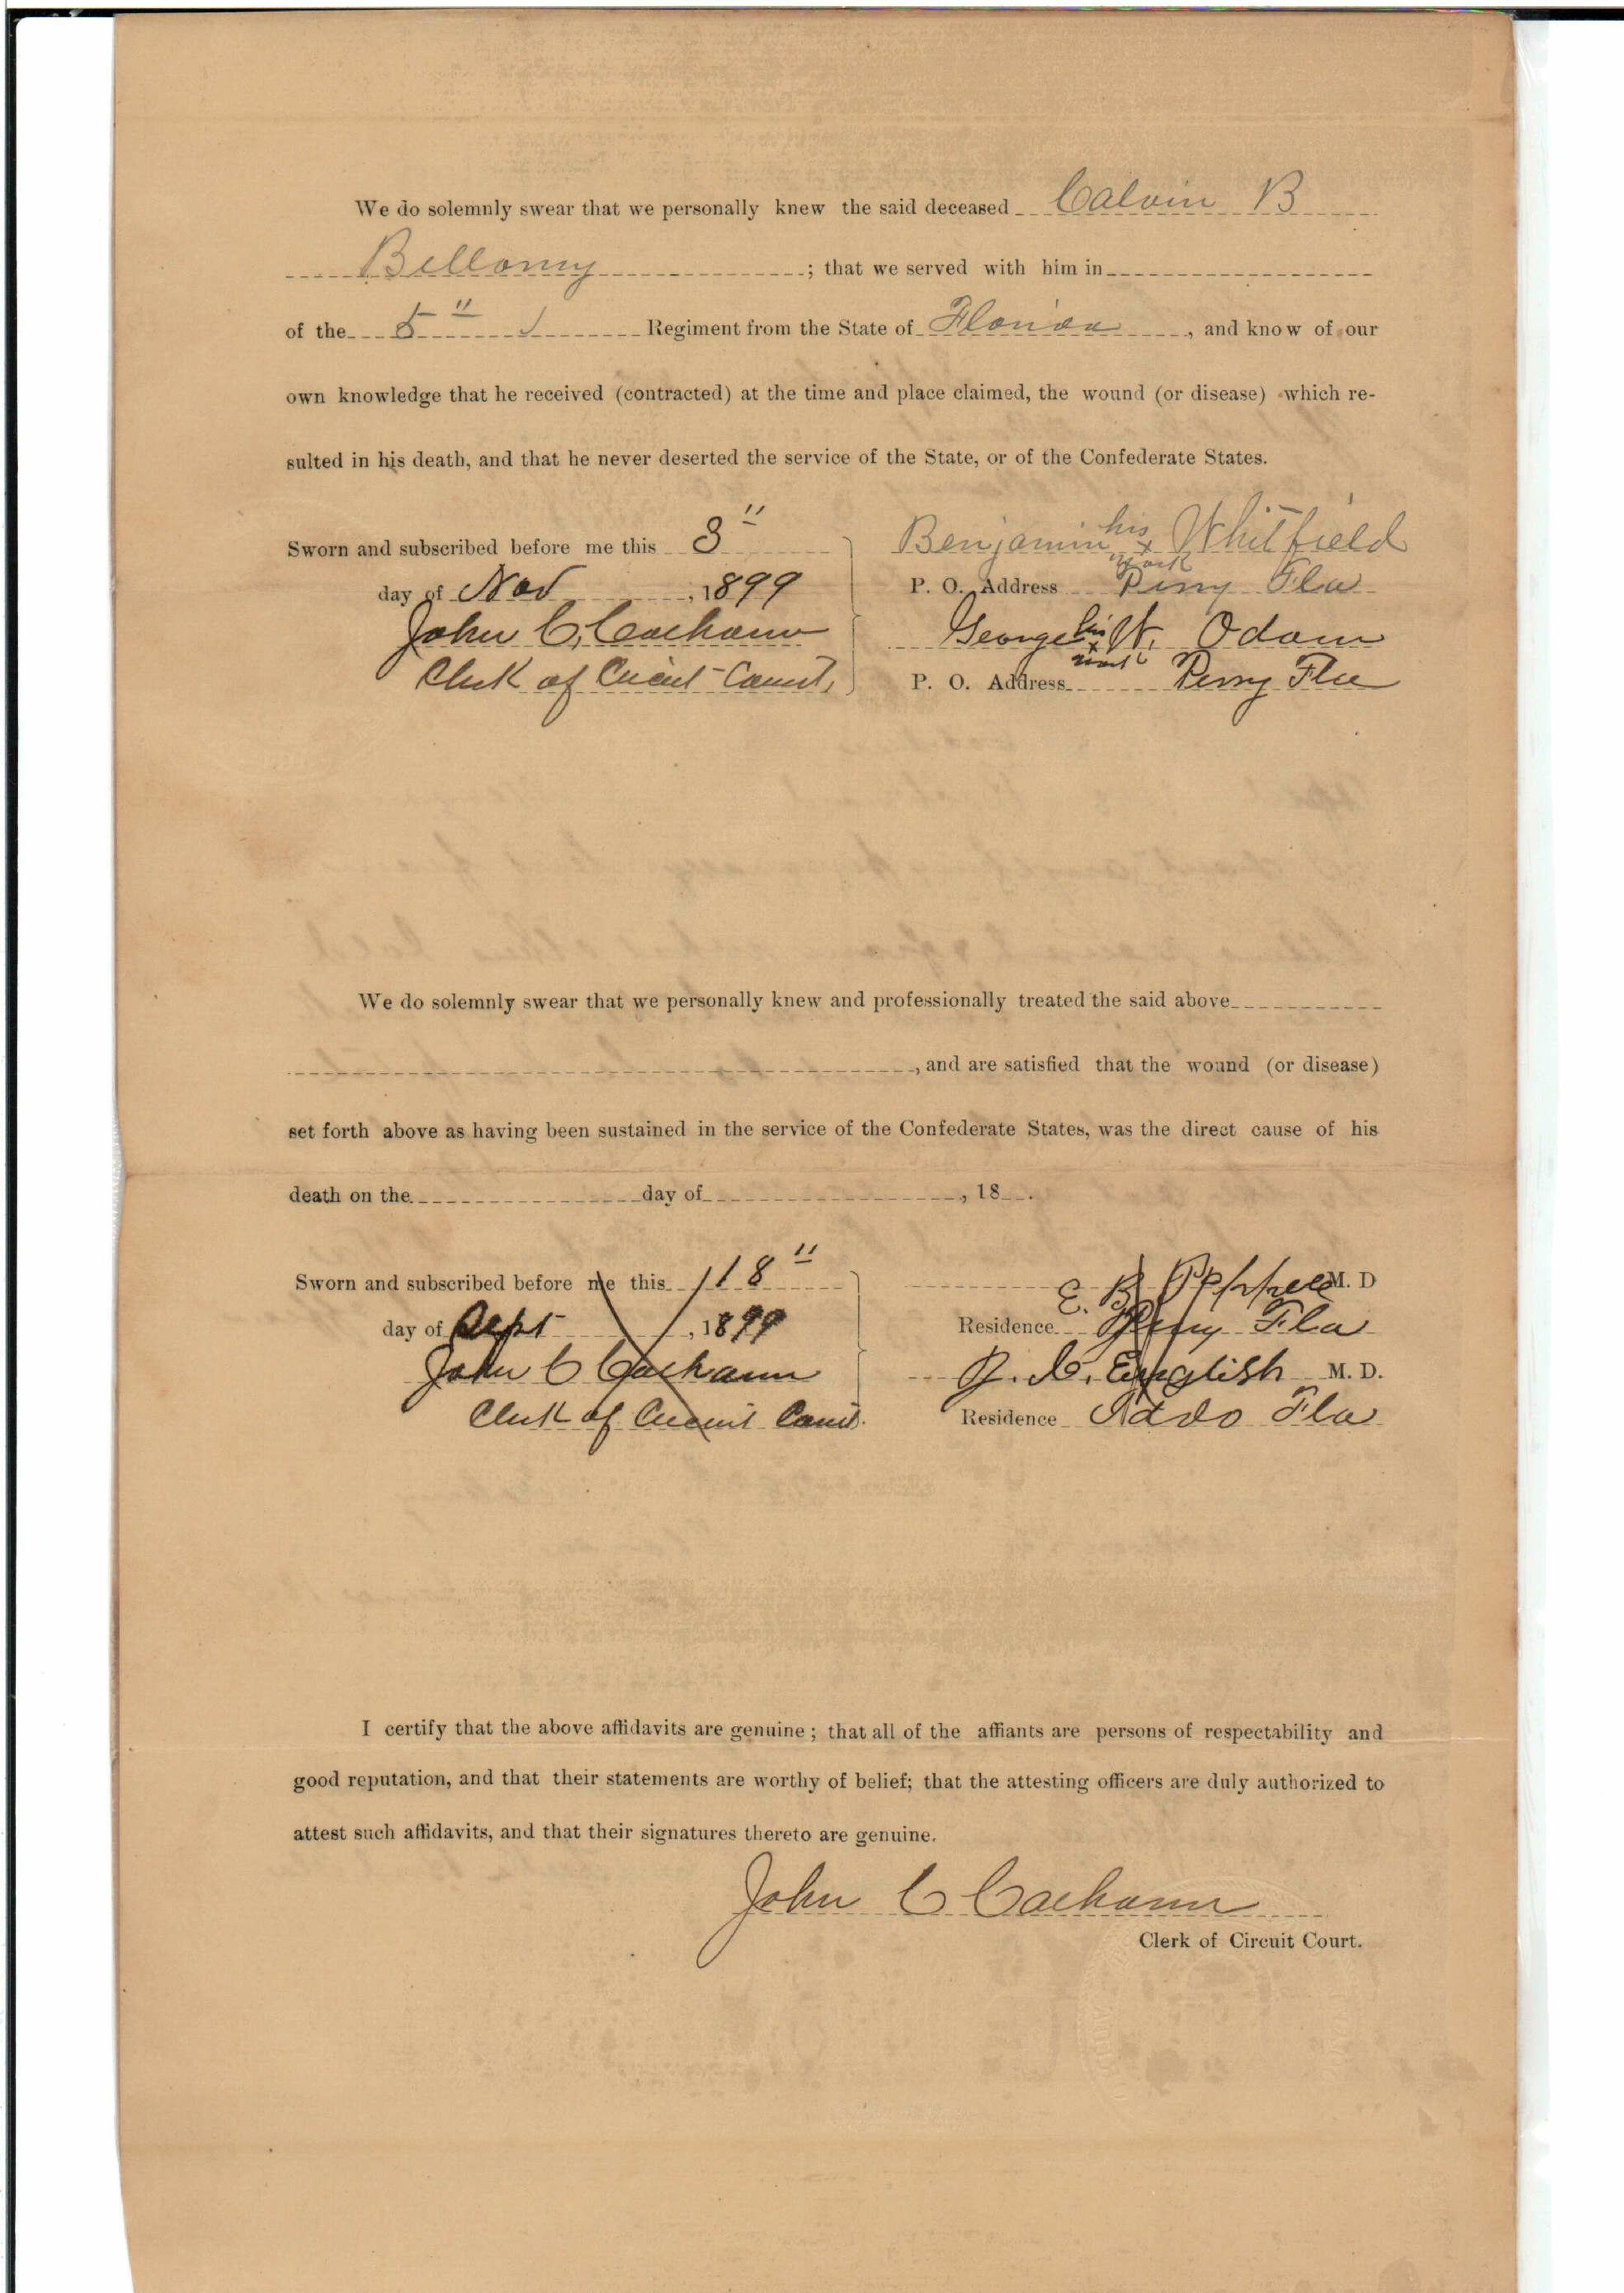 We do solemnly swear that we personally knew the said deceased Calvin B
Bellamy ; that we served with him in
of the 5" Regiment from the State of Florida , and know of our
own knowledge that he received (contracted) at the time and place claimed, the wound (or disease) which re-
sulted in his death, and that he never deserted the service of the State, or of the Confederate States.
Sworn and subscribed before me this 3"
day of Nov , 1899
John C. Calhoun
Clerk of Circuit Court,
Benjamin his x mark Whitfield
P. O. Address Perry Fla
George his x mark W. Odom
P. O. Address Perry Fla
We do solemnly swear that we personally knew and professionally treated the said above
, and are satisfied that the wound (or disease)
set forth above as having been sustained in the service of the Confederate States, was the direct cause of his
death on the day of , 18 .
Sworn and subscribed before me this 18"
day of Sept , 1899
John C Calhoun
Clerk of Circuit Court.
E. B. M. D
Residence Perry Fla
English M. D.
Residence Fla
I certify that the above affidavits are genuine ; that all of the affiants are persons of respectability and
good reputation, and that their statements are worthy of belief; that the attesting officers are duly authorized to
attest such affidavits, and that their signatures thereto are genuine.
John C Calhoun
Clerk of Circuit Court.